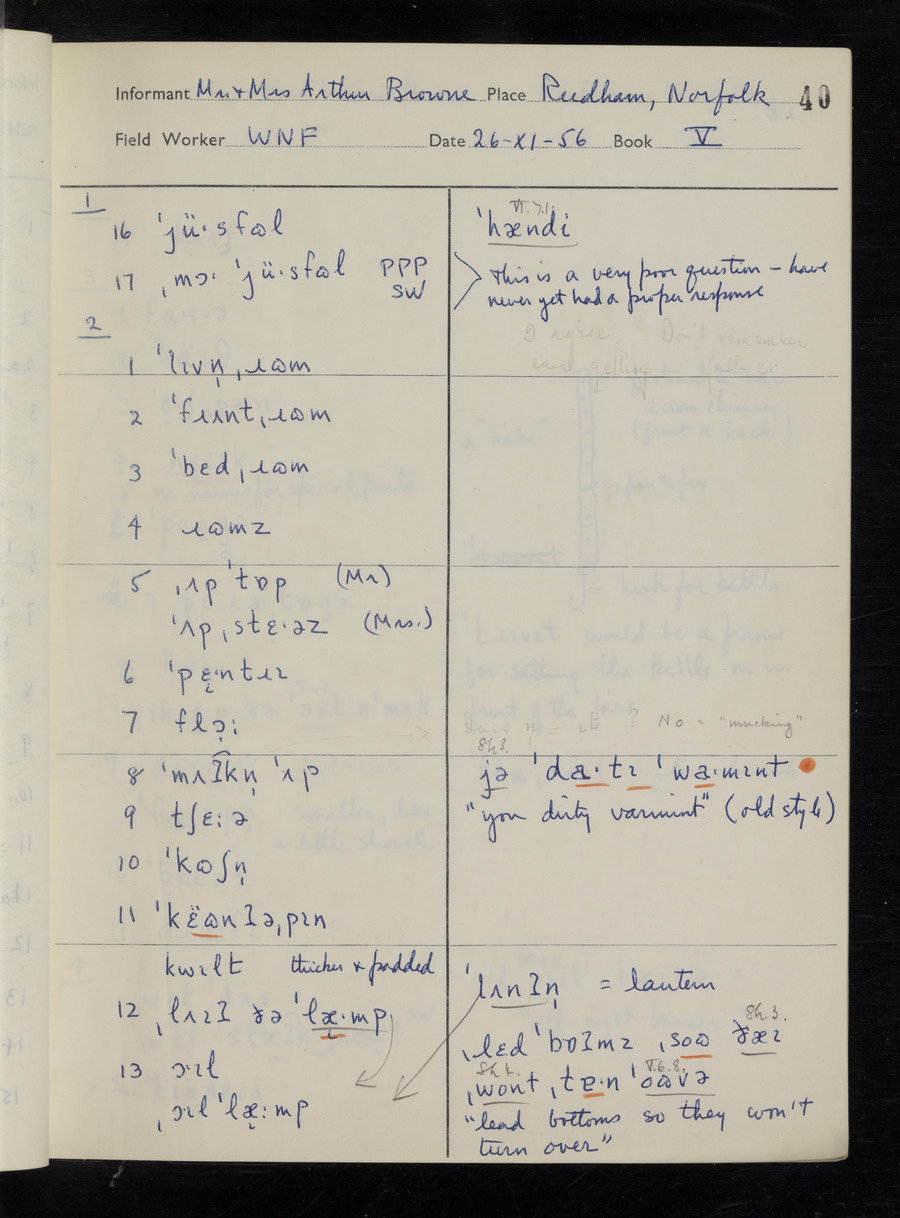 Informant Mr + Mrs Arthur Browne Place Reedham, Norfolk 40
Field Worker WNF Date 26-XI-56 Book V
1
16 ˈjü·sfəl
17 ˌmɔ· ˈjü·sfəl PPP
SW
2
1 ˈlɪvn̩ˌɹʊm
2 ˈfɹʌntˌɹʊm
3 ˈbɛdˌɹʊm
4 ɹʊmz
5 ˌʌp ˈtɒp (Mr)
ˈʌpˌstɛ·əz (Mrs.)
6 ˈpɛ̞·ntɹɪ
7 flɔ̞:
8 ˈmʌʔkn̩ ˈʌp
9 tʃɛ:ə
10 ˈkʊʃn̩
11 ˈkɛ̈ʊnʔəˌpɪn
kwɪlt thicker & padded
12 ˌlʌɪʔ ðə ˈlæ̞·mp
13 ɔɪl
ˌɔɪl ˈlæ̞:mp
VI.7.1.
ˈhændi
This is a very poor question – have
never yet had a proper response
I agree. Don't remember
ever getting
? No = "mucking"
8h3.
jə ˈda·tɪ ˈwa·mɪnt
"you dirty varmint" (old style)
ˈlʌnʔn̩ = lantern
8h3.
ˌlɛd ˈbɒʔmz ˌsoʊ ðæɪ
V.6.8.
ˌwont ˌtɐ·n ˈoʊvə
"lead bottoms so they won't
turn over"